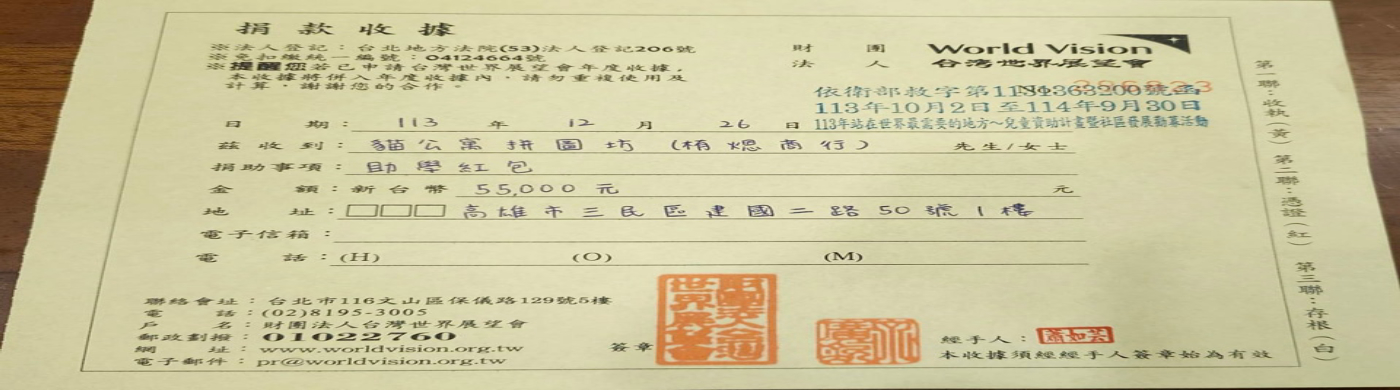 捐款收據
※法人登記：台北地方法院(53)法人登記206號
※免扣繳統一編號：04124664號
※提醒您若已申請台灣世界展望會年度收據，
本收據將併入年度收據內，請勿重複使用及
計算，謝謝您的合作。
財團法人
World Vision
台灣世界展望會
依衛部救字第1131363200號函
113年10月2日至114年9月30日
113年站在世界最需要的地方～兒童資助計畫暨社區發展勸募活動
日期：113年12月26日
茲收到：貓公寓拼圖坊(栯煾商行) 先生/女士
捐助事項：助學紅包
金額：新台幣 55,000元 元
地址：□□□ 高雄市三民區建國二路50號1樓
電子信箱：
電話：(H) (O) (M)
聯絡會址：台北市116文山區保儀路129號5樓
電話：(02)8195-3005
戶名：財團法人台灣世界展望會
郵政劃撥：01022760
網址：www.worldvision.org.tw
電子郵件：pr@worldvision.org.tw
簽章
經手人：
本收據須經經手人簽章始為有效
第一聯：收執(黃) 第二聯：憑證(紅) 第三聯：存根(白)